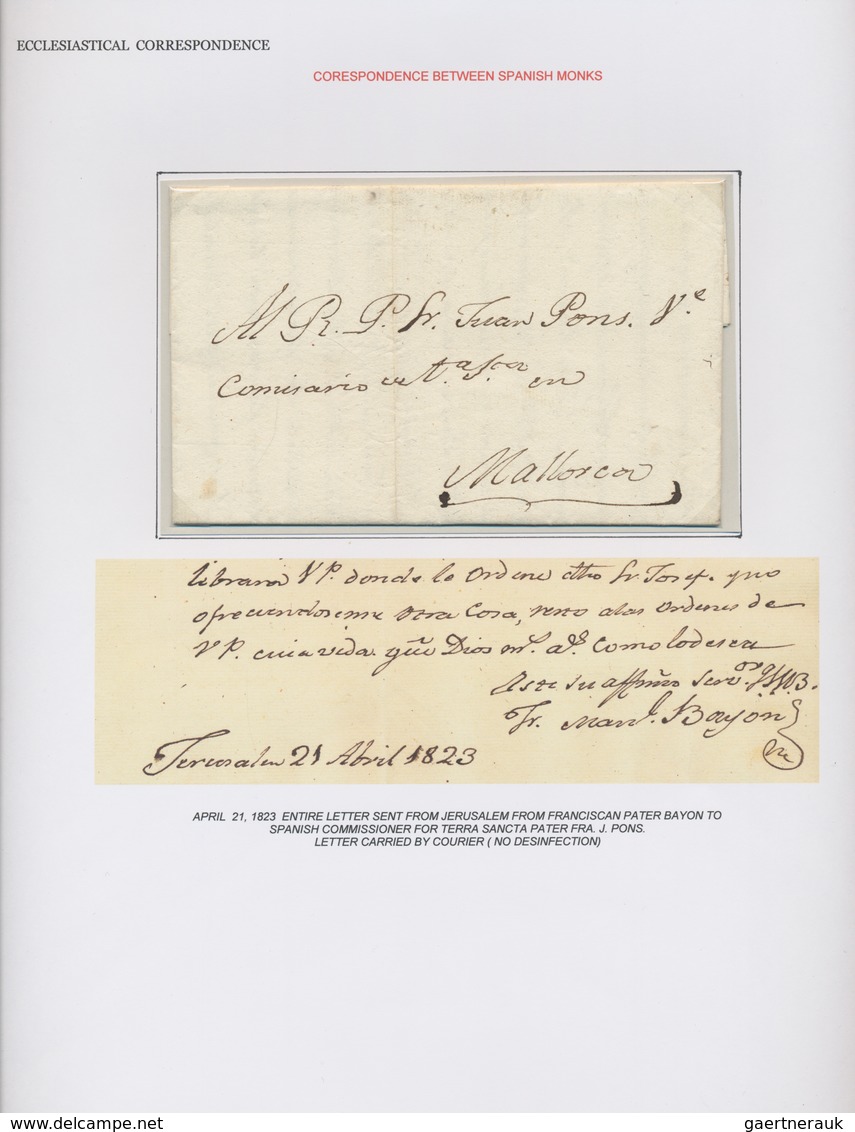 ECCLESIASTICAL CORRESPONDENCE
CORESPONDENCE BETWEEN SPANISH MONKS
Al R. P. Fr. Juan Pons. V.e
Comisario de T.a S.ta en
Mallorca
librara V P. donde le Ordene dho Fr. Josef. y no
ofreciendoseme otra Cosa, resto a las Ordenes de
V P. cuia vida gũe Dios m.s a.s como lo desea
Este su affmo Serv.or
Fr. Man.l Bayon
Jerusalen 21 Abril 1823
APRIL 21, 1823 ENTIRE LETTER SENT FROM JERUSALEM FROM FRANCISCAN PATER BAYON TO
SPANISH COMMISSIONER FOR TERRA SANCTA PATER FRA. J. PONS.
LETTER CARRIED BY COURIER ( NO DESINFECTION)
delcampe.net
gaertnerauk